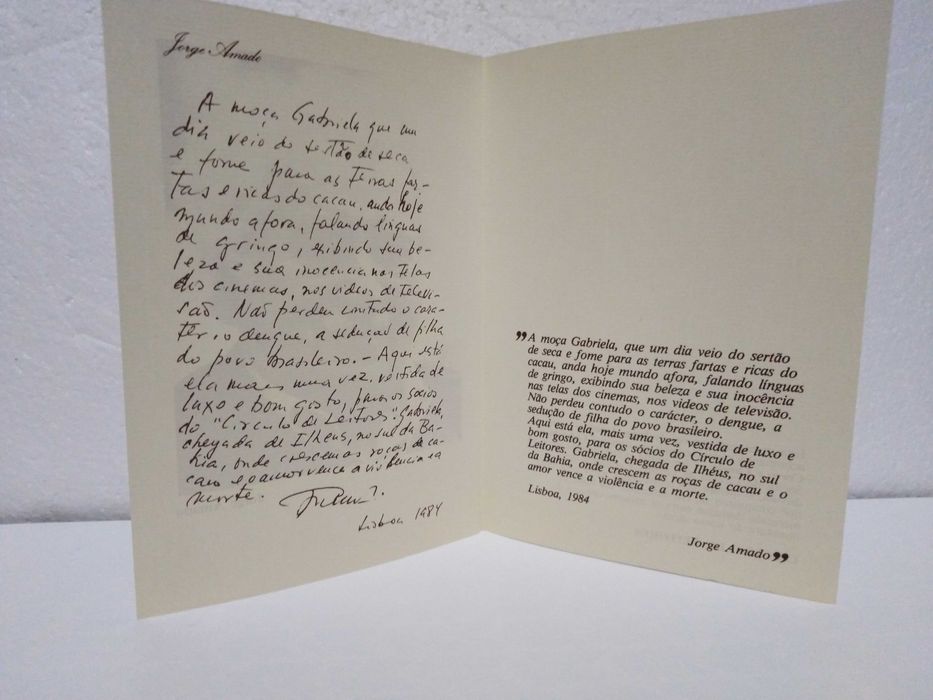 Jorge Amado
A moça Gabriela que um
dia veio do sertão de seca
e fome para as terras far-
tas e ricas do cacau, anda hoje
mundo afora, falando línguas
de gringo, exibindo sua be-
leza e sua inocência nas telas
dos cinemas, nos videos de televi-
são. Não perdeu contudo o cará-
ter, o dengue, a sedução de filha
do povo brasileiro. - Aqui está
ela mais uma vez, vestida de
luxo e bom gosto, para os sócios
do "Circulo de Leitores". Gabriela,
chegada de Ilhéus, no sul da Ba-
hia, onde crescem as roças de ca-
cau e o amor vence a violência e a
morte.
Lisboa 1984
"A moça Gabriela, que um dia veio do sertão
de seca e fome para as terras fartas e ricas do
cacau, anda hoje mundo afora, falando línguas
de gringo, exibindo sua beleza e sua inocência
nas telas dos cinemas, nos videos de televisão.
Não perdeu contudo o carácter, o dengue, a
sedução de filha do povo brasileiro.
Aqui está ela, mais uma vez, vestida de luxo e
bom gosto, para os sócios do Círculo de
Leitores. Gabriela, chegada de Ilhéus, no sul
da Bahia, onde crescem as roças de cacau e o
amor vence a violência e a morte.
Lisboa, 1984
Jorge Amado"